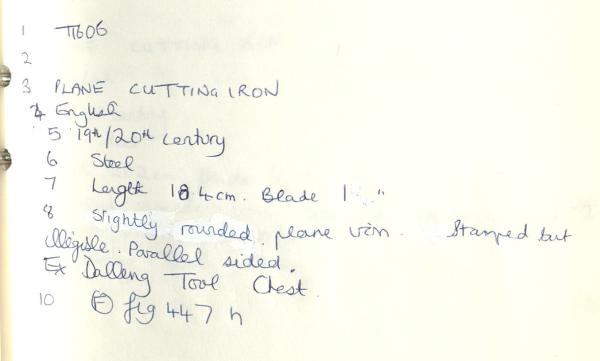 1 T1606
2
3 PLANE CUTTING IRON
4 English
5 19th/20th Century
6 Steel
7 Length 18.4cm. Blade 1 "
8 Slightly rounded. plane Stamped but
illegible. Parallel sided.
Ex Dalleng Tool Chest.
10 fig 447 h